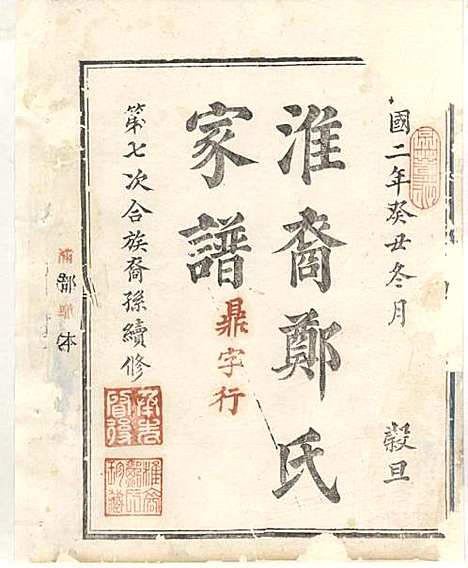 國二年癸丑冬月 穀旦
淮裔鄭氏
家譜
鼎字行
第七次合族裔孫續修
本